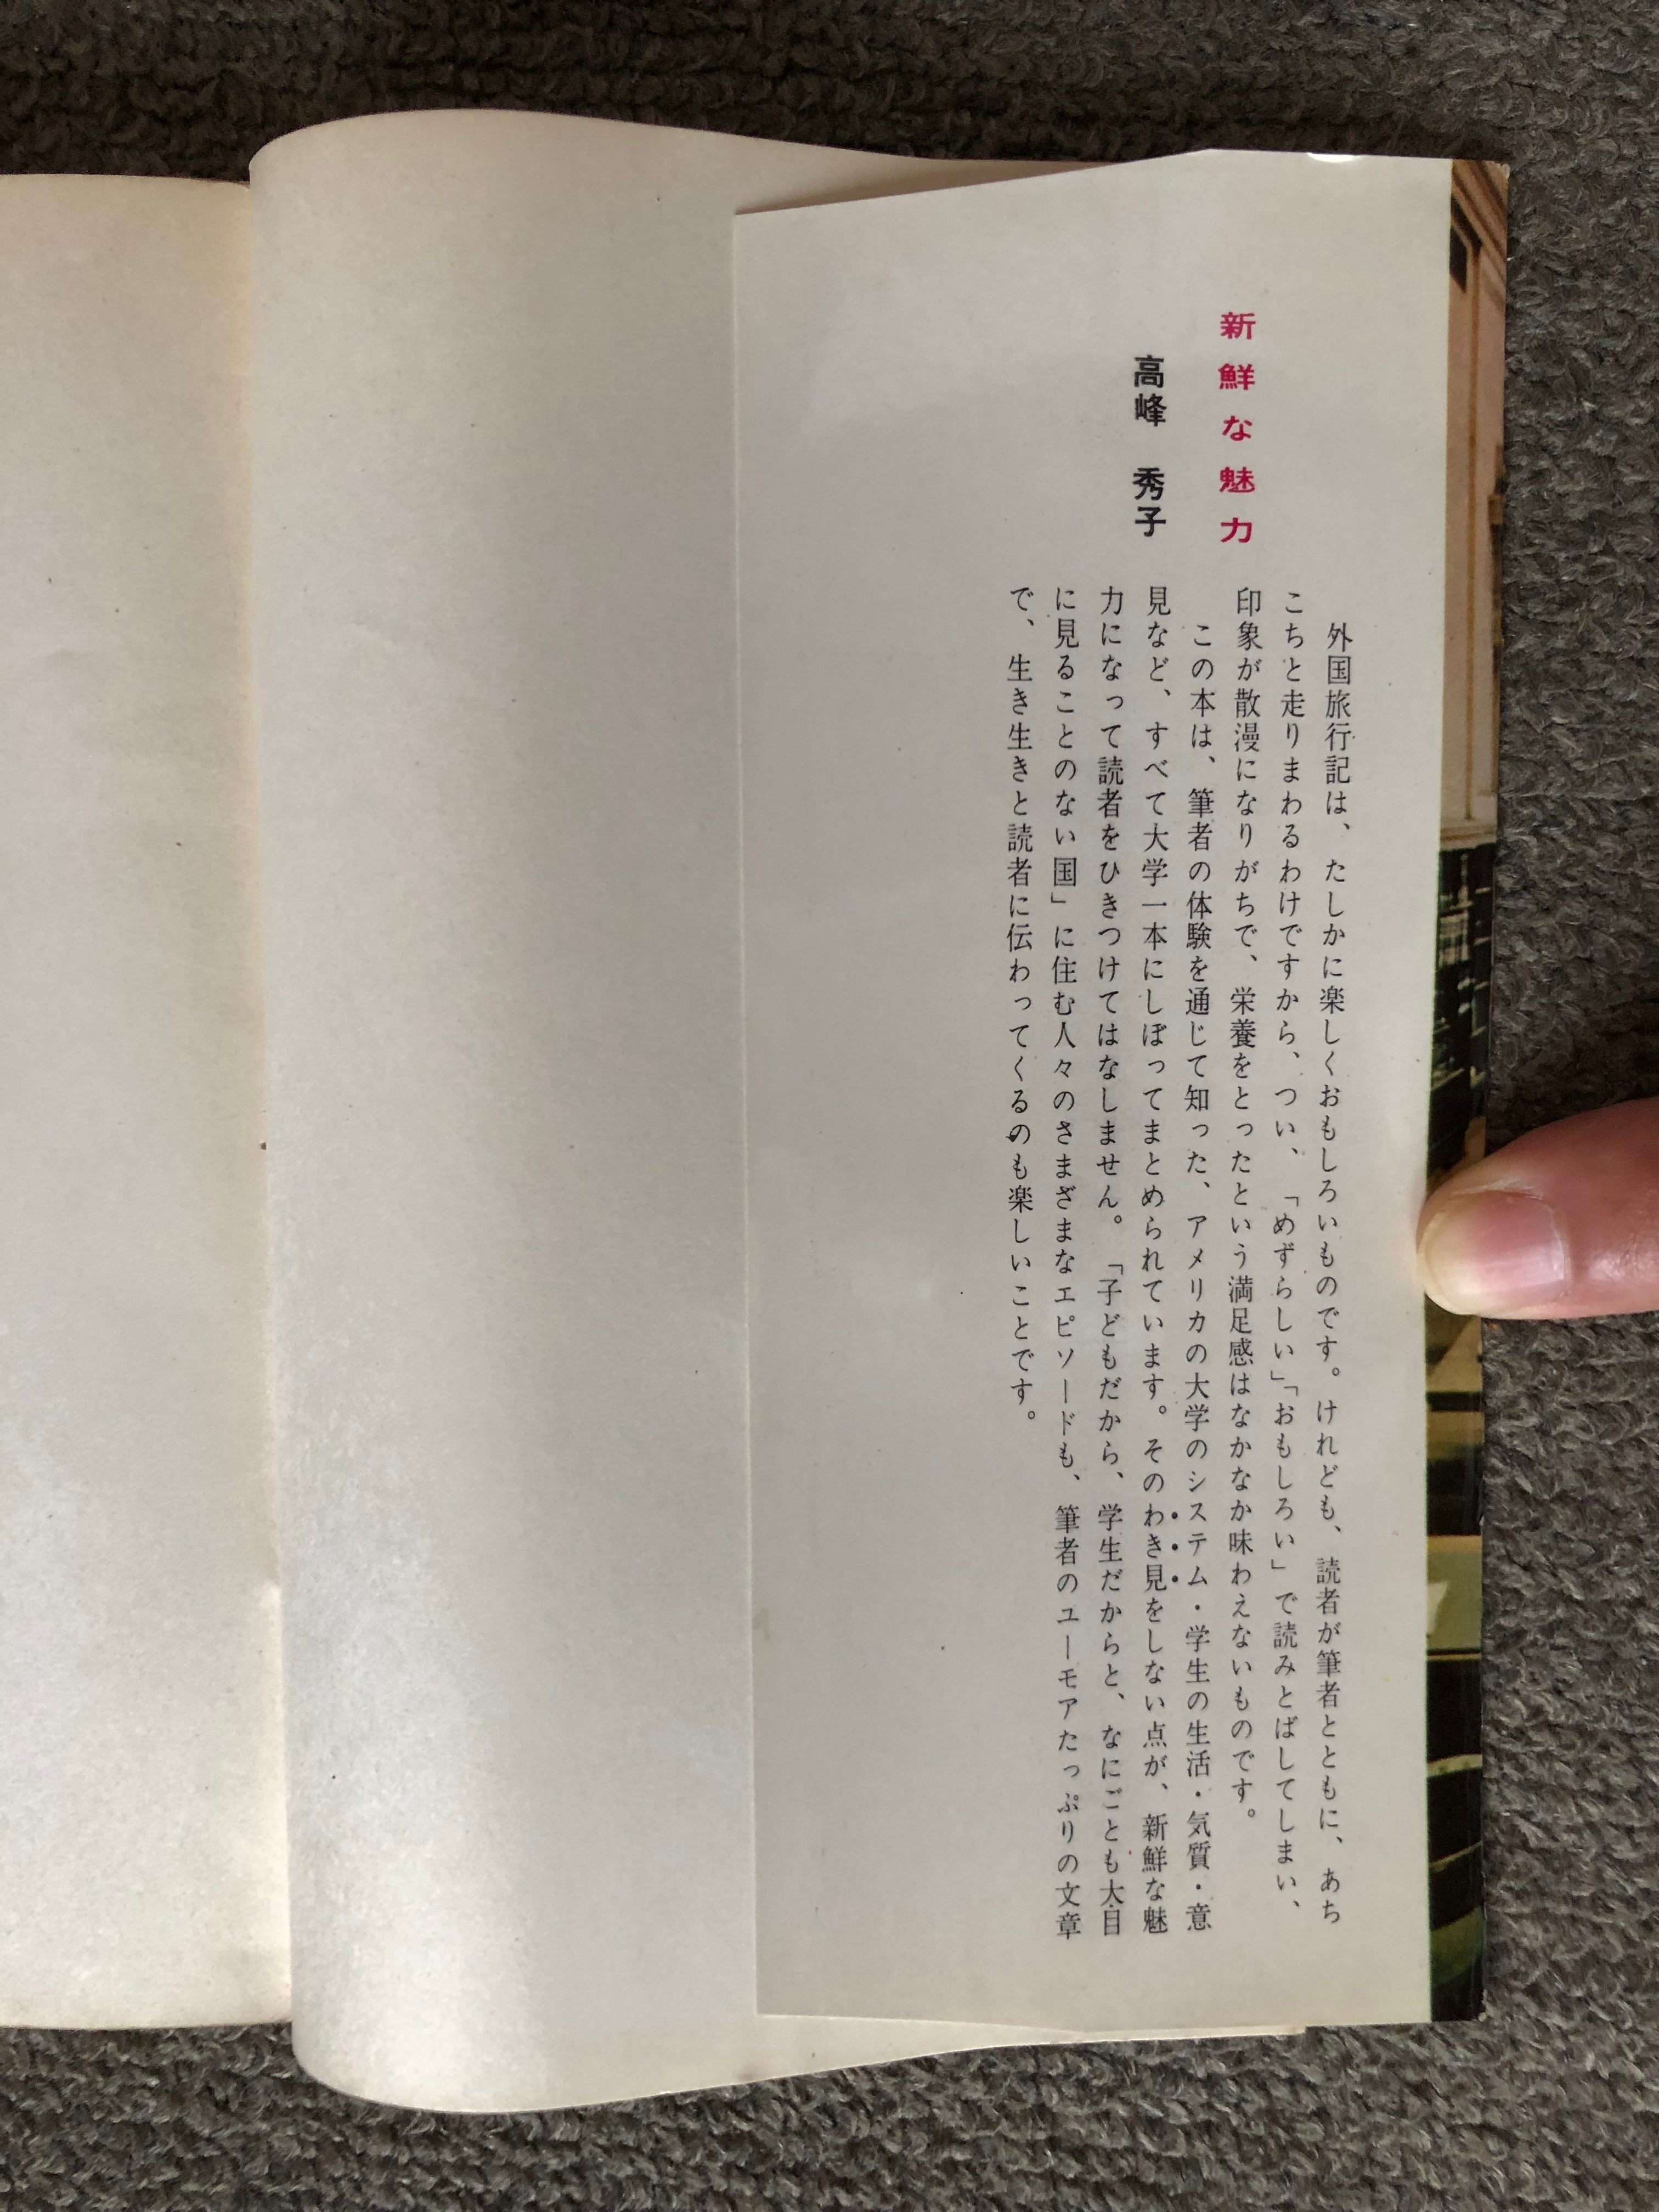 新鮮な魅力
高峰 秀子
外国旅行記は、たしかに楽しくおもしろいものです。けれども、読者が筆者とともに、あち
こちと走りまわるわけですから、つい、「めずらしい」「おもしろい」で読みとばしてしまい、
印象が散漫になりがちで、栄養をとったという満足感はなかなか味わえないものです。
この本は、筆者の体験を通じて知った、アメリカの大学のシステム・学生の生活・気質・意
見など、すべて大学一本にしぼってまとめられています。そのわき見をしない点が、新鮮な魅
力になって読者をひきつけてはなしません。「子どもだから、学生だからと、なにごとも大目
に見ることのない国」に住む人々のさまざまなエピソードも、筆者のユーモアたっぷりの文章
で、生き生きと読者に伝わってくるのも楽しいことです。